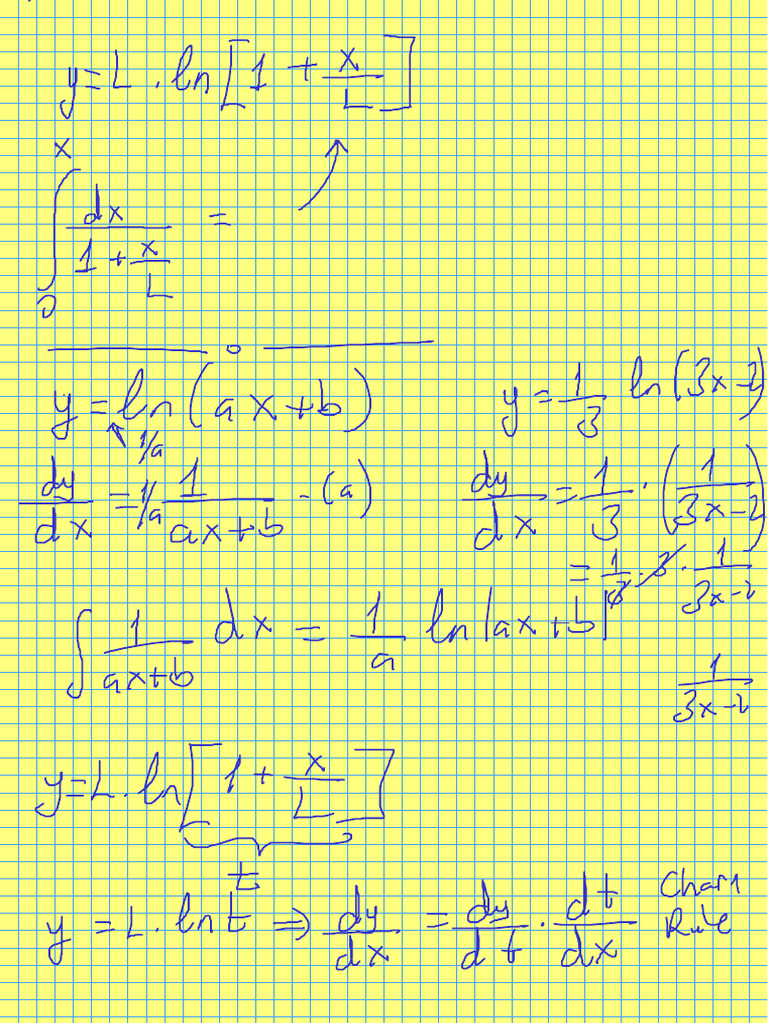 y = L . ln[1 + x/L]
∫₀ˣ dx/(1 + x/L) =
y = 1/a ln(ax+b)
dy/dx = 1/a 1/(ax+b) · (a)
y = 1/3 ln(3x-2)
dy/dx = 1/3 · (1/(3x-2))
= 1/3 · 3 · 1/(3x-2)
1/(3x-2)
∫ 1/(ax+b) dx = 1/a ln|ax+b|
y = L . ln[1 + x/L]
t
y = L . ln t ⇒ dy/dx = dy/dt · dt/dx
Chain
Rule